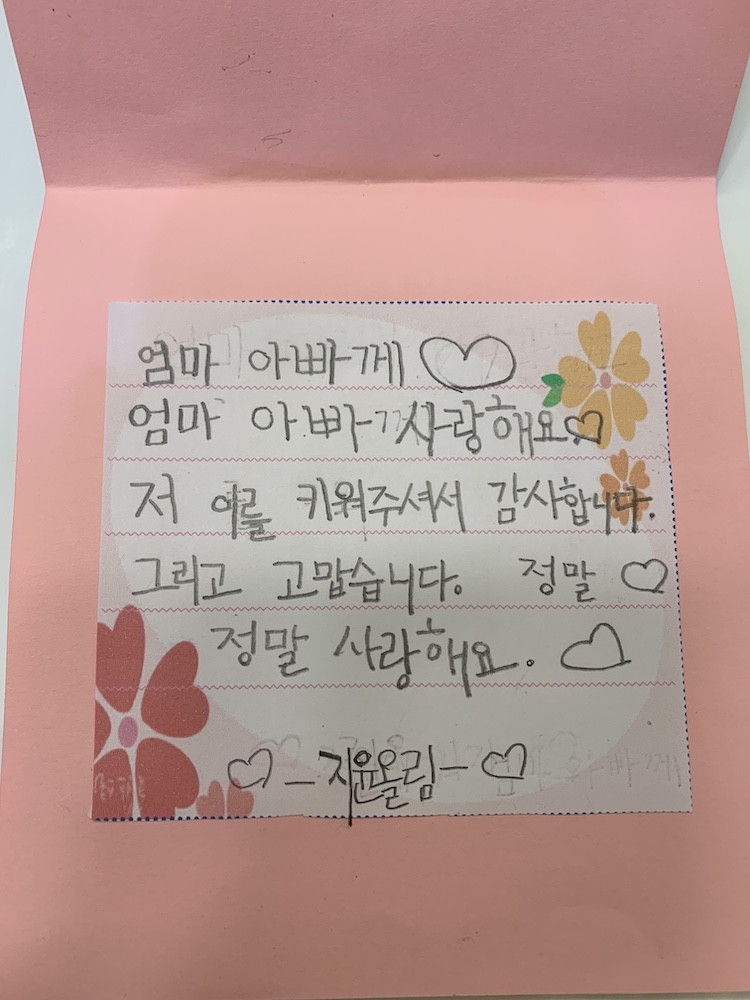 엄마 아빠께
엄마 아빠 사랑해요
저 를 키워주셔서 감사합니다.
그리고 고맙습니다. 정말
정말 사랑해요.
-지윤올림-